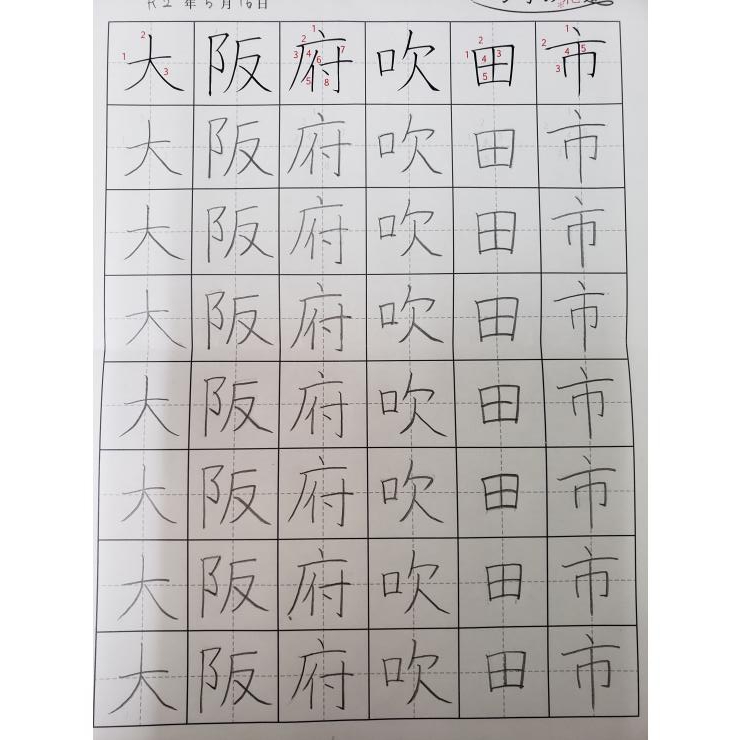 R2年5月16日
大阪府吹田市
大阪府吹田市
大阪府吹田市
大阪府吹田市
大阪府吹田市
大阪府吹田市
大阪府吹田市
大阪府吹田市